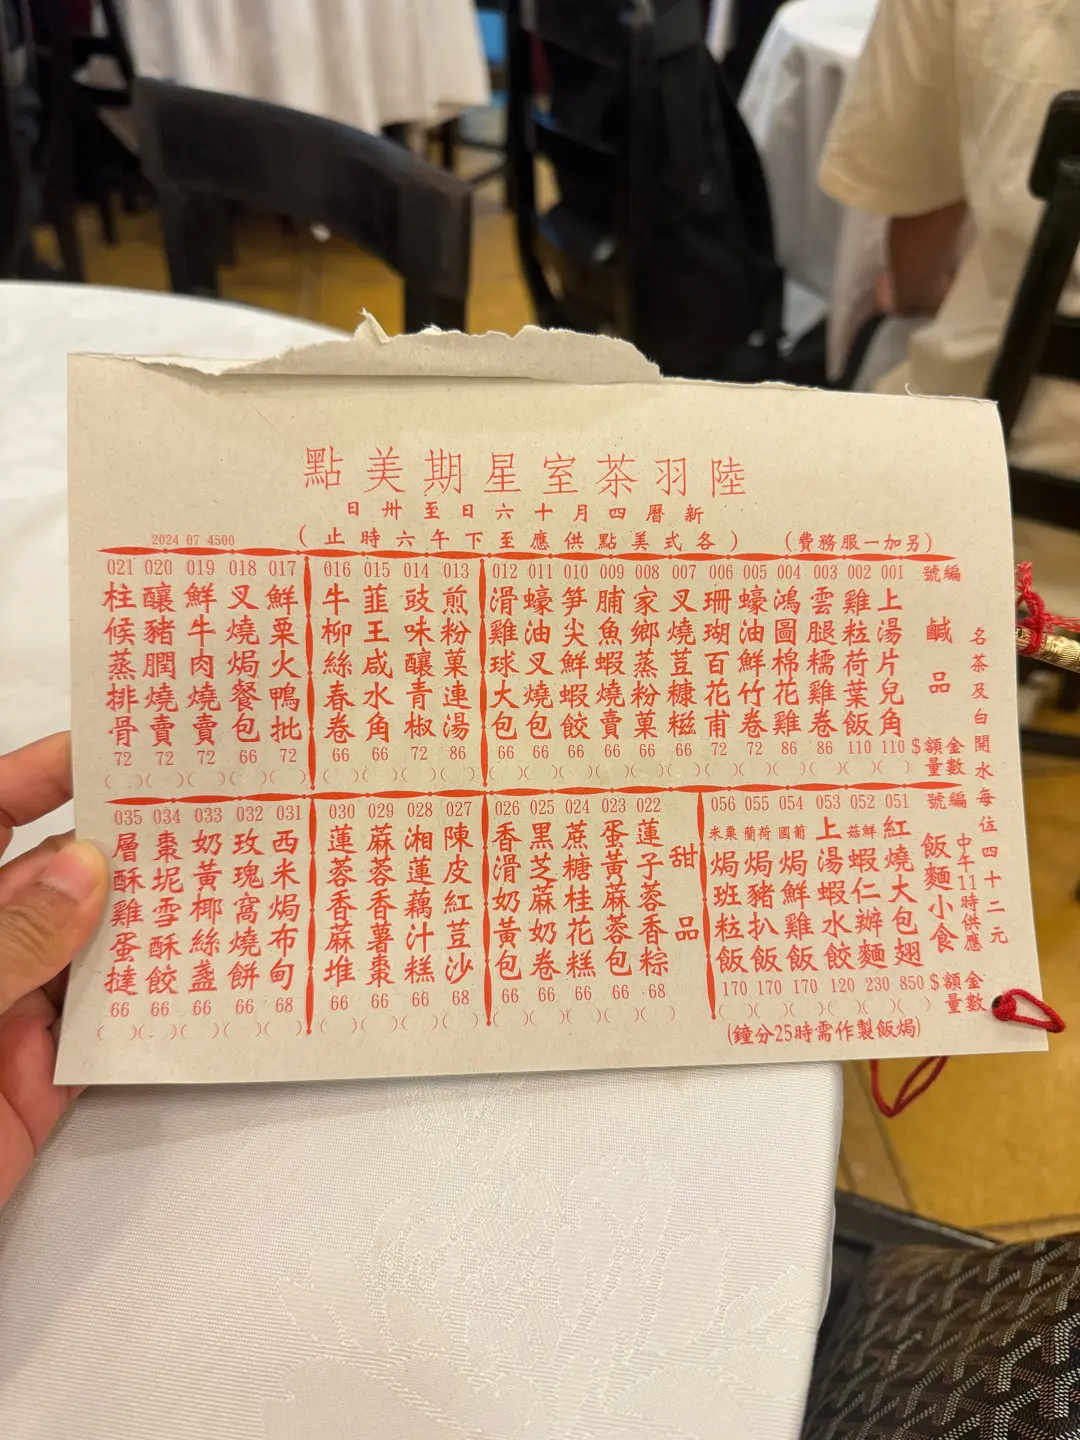 陸羽茶室星期美點
新曆四月十六日至卅日
(各式美點供應至下午六時止)
(另加一服務費)
2024 07 4500
名茶及白開水每位四十二元
編號
鹹品
金額$
數量
001 上湯片兒角 110
002 雞粒荷葉飯 110
003 雲腿糯雞卷 86
004 鴻圖棉花雞 86
005 蠔油鮮竹卷 72
006 珊瑚百花甫 72
007 叉燒荳糠糍 66
008 家鄉蒸粉菓 66
009 脯魚蝦燒賣 66
010 筍尖鮮蝦餃 66
011 蠔油叉燒包 66
012 滑雞球大包 66
013 煎粉菓連湯 86
014 豉味釀青椒 72
015 韮王咸水角 66
016 牛柳絲春卷 66
017 鮮粟火鴨批 72
018 叉燒焗餐包 66
019 鮮牛肉燒賣 72
020 釀豬膶燒賣 72
021 柱候蒸排骨 72
編號
飯麵小食
中午11時供應
金額$
數量
051 紅燒大包翅 850
052 鮮菇蝦仁辦麵 230
053 上湯蝦水餃 120
054 葡國焗鮮雞飯 170
055 荷蘭焗豬扒飯 170
056 粟米焗班粒飯 170
(焗飯製作需時25分鐘)
甜品
022 蓮子蓉香粽 68
023 蛋黃蔴蓉包 66
024 蔗糖桂花糕 66
025 黑芝蔴奶卷 66
026 香滑奶黃包 66
027 陳皮紅荳沙 68
028 湘蓮藕汁糕 66
029 蔴蓉香薯棗 66
030 蓮蓉香蔴堆 66
031 西米焗布甸 68
032 玫瑰窩燒餅 66
033 奶黃椰絲盞 66
034 棗坭雪酥餃 66
035 層酥雞蛋撻 66